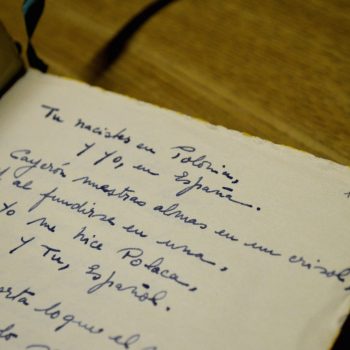 Tu nacistes en Polonia,
y yo, en España.
Cayerón nuestras almas en un crisol,
al fundirse en una,
Yo me hice Polaca,
y Tu, Español.
lo que el